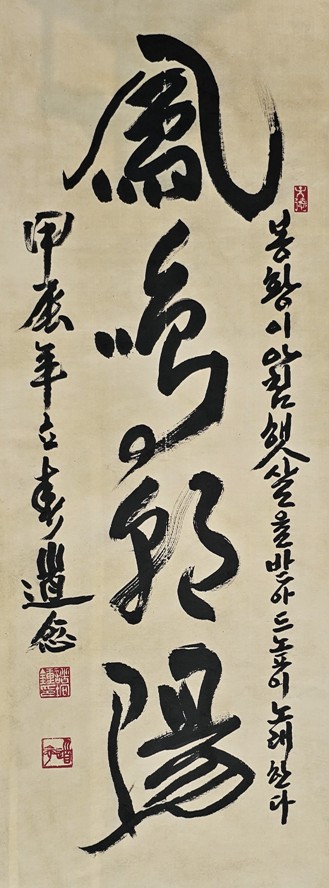 봉황이 아침 햇살을 받아 드높이 노래한다
鳳鳴朝陽
甲辰年立春